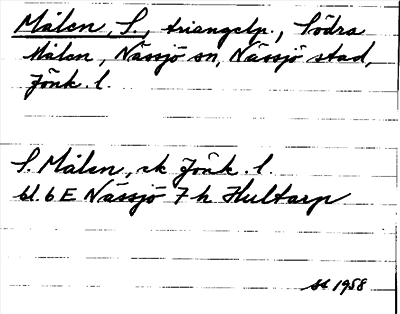 Målen, S., triangelp., Södra
Målen, Nässjö sn, Nässjö stad,
Jönk. l.
S. Målen, ek Jönk. l.
bl. 6 E Nässjö 7 h Hultarp
st 1958